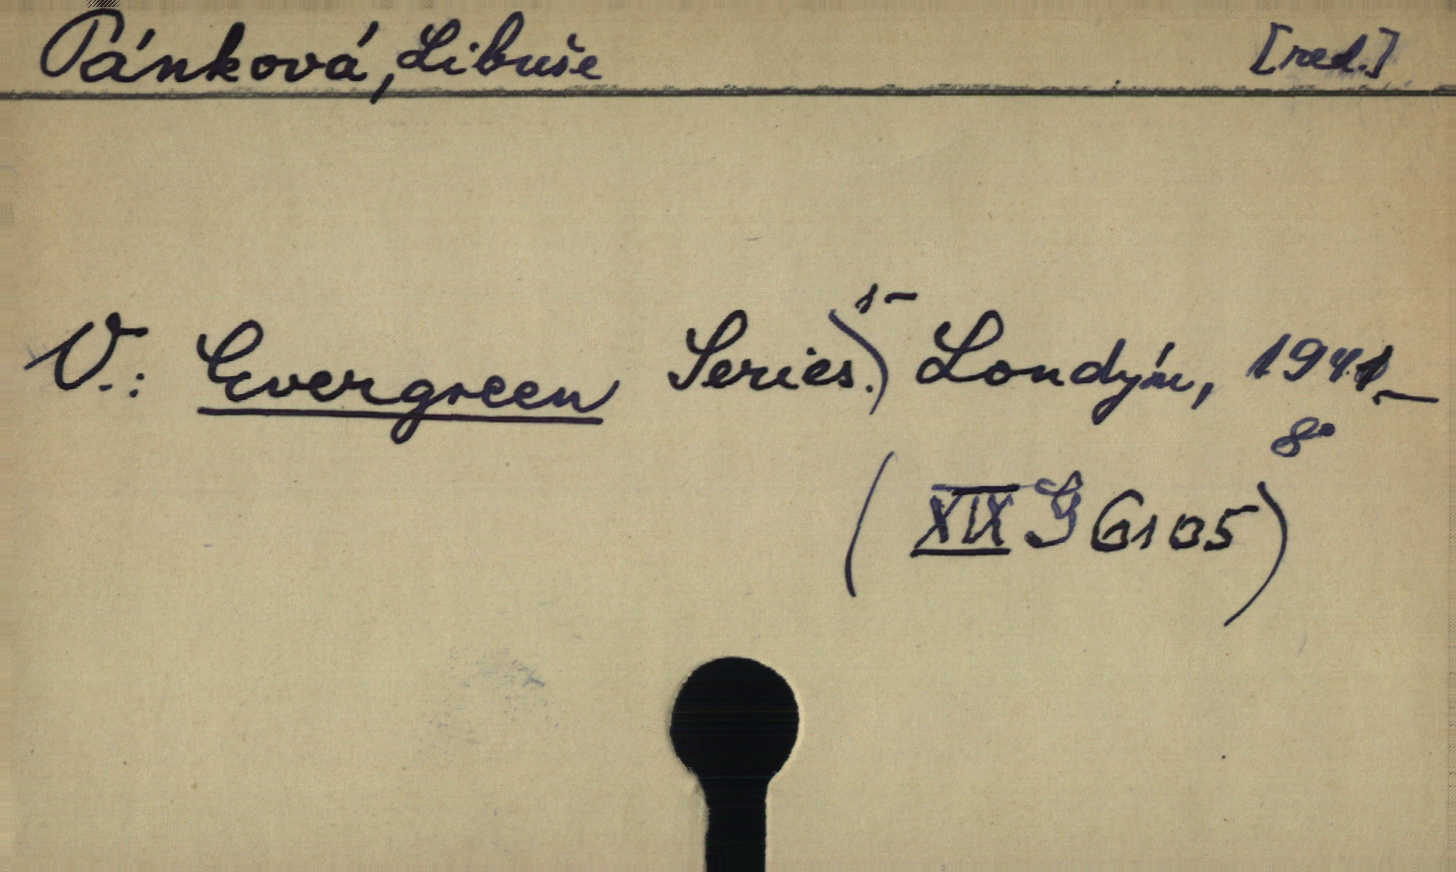 Pánková, Libuše [red.]
V.: Evergreen Series.) 1- Londýn, 1941-
8°
(XIX G 6105)